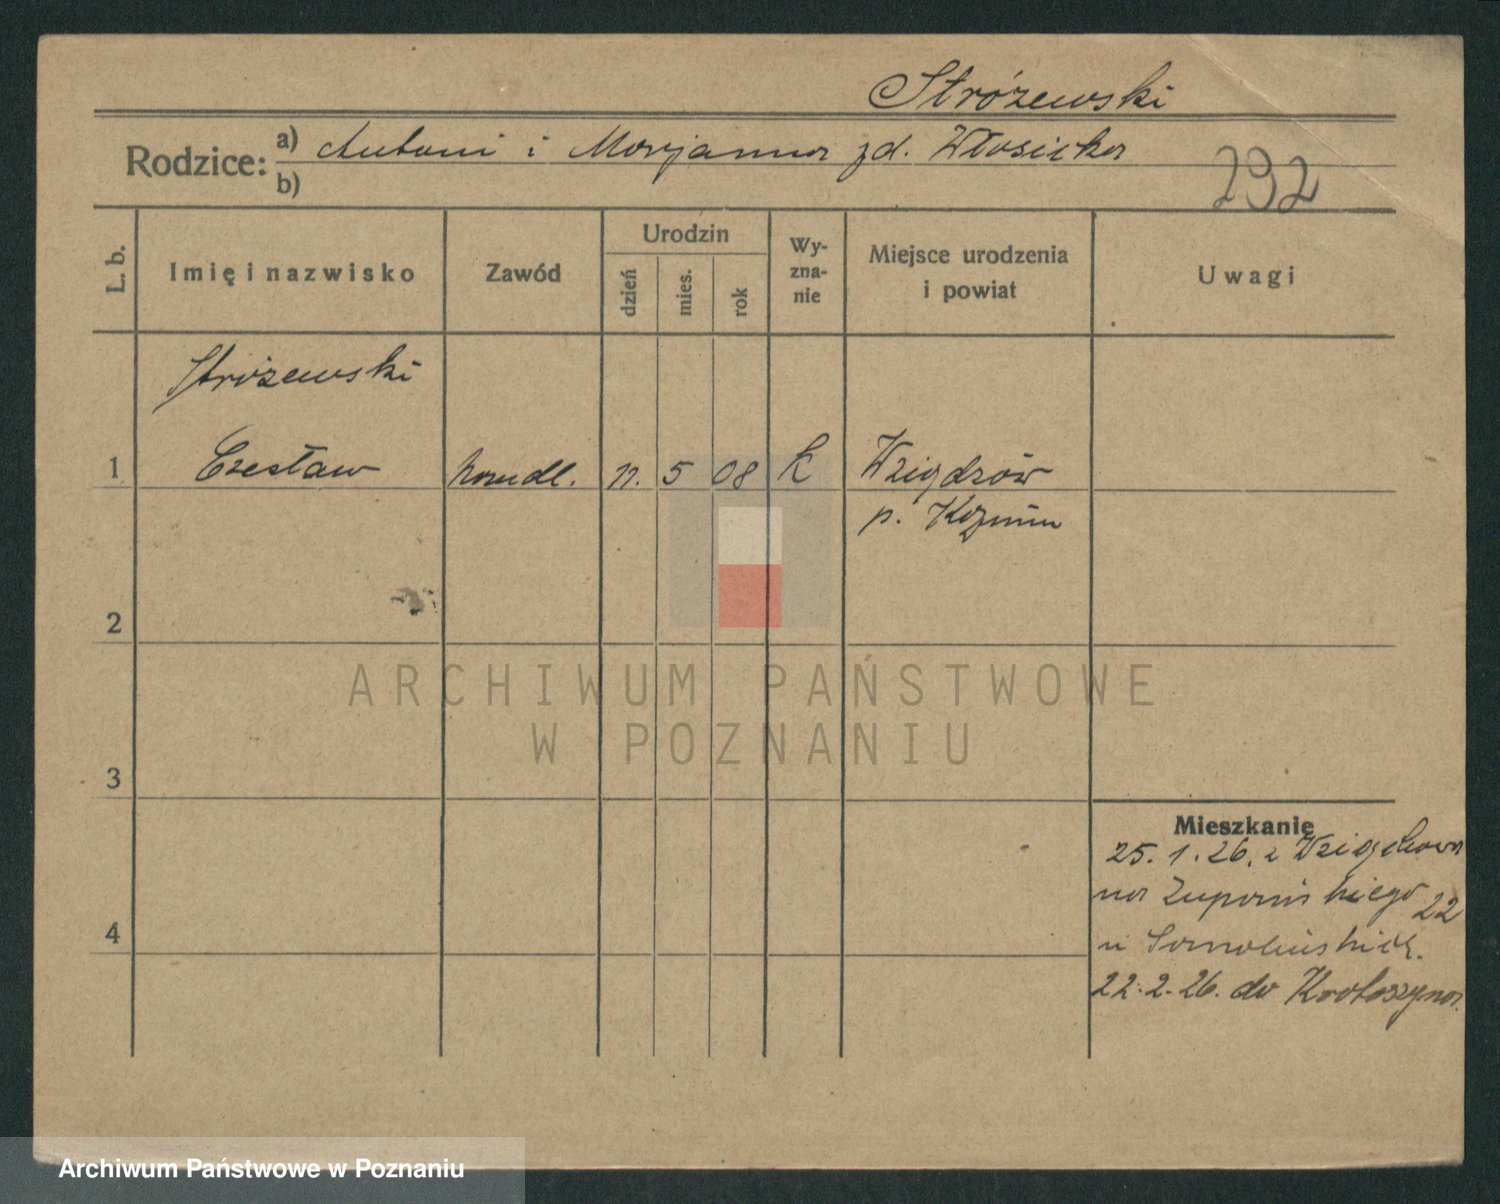 Stróżewski
Rodzice: a) Antoni i Marjanna zd. Włosicka
b)
292
L. b.
Imię i nazwisko
Zawód
Urodzin
dzień
mies.
rok
Wy-
zna-
nie
Miejsce urodzenia
i powiat
Uwagi
Stróżewski
1 Czesław handl. 11. 5 08 k Wziąchów
p. Koźmin
2
3
4
ARCHIWUM PAŃSTWOWE
W POZNANIU
Mieszkanie
25. 1. 26. z Wziąchowa
na Zupańskiego 22
u
22. 2. 26. do Krotoszyna.
Archiwum Państwowe w Poznaniu